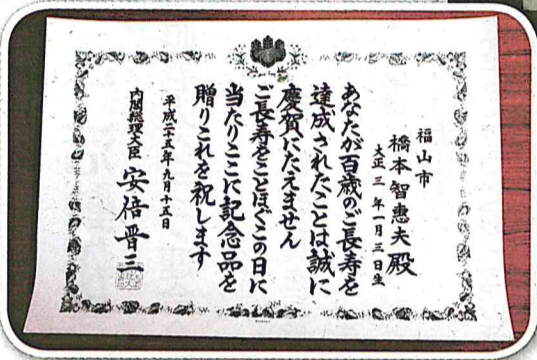 福山市
橋本智惠夫殿
大正三年一月三日生
あなたが百歳のご長寿を
達成されたことは誠に
慶賀にたえません
ご長寿をことほぐこの日に
当たりここに記念品を
贈りこれを祝します
平成二十五年九月十五日
内閣総理大臣 安倍晋三